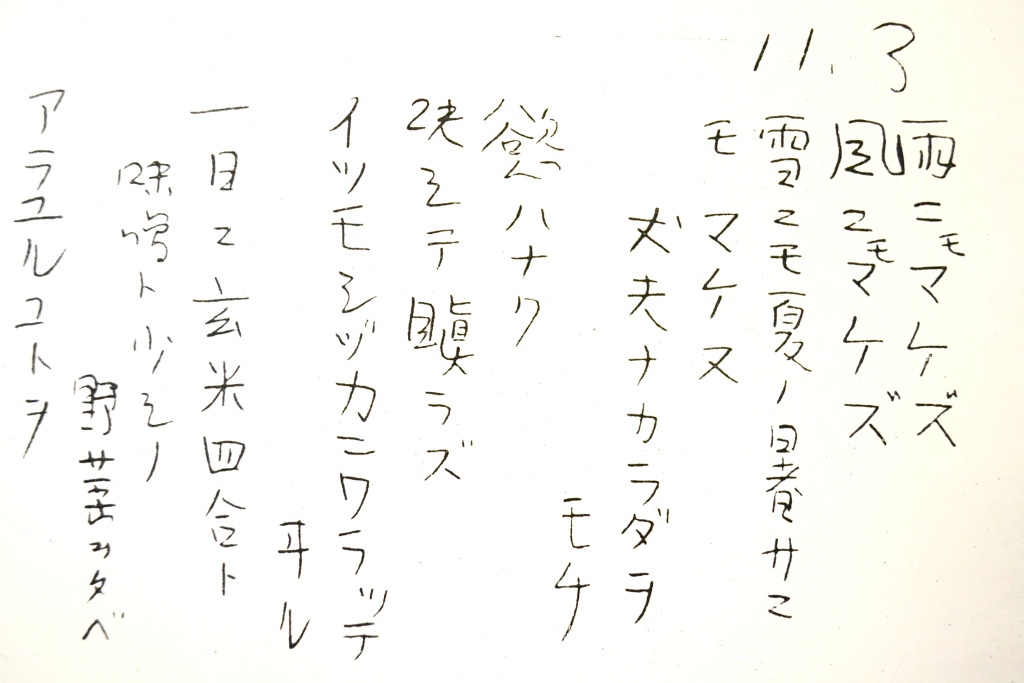 11.3
雨ニモマケズ
風ニモマケズ
雪ニモ夏ノ暑サニ
モマケヌ
丈夫ナカラダヲ
モチ
慾ハナク
決シテ瞋ラズ
イツモシヅカニワラッテ
ヰル
一日ニ玄米四合ト
味噌ト少シノ
野菜ヲタベ
アラユルコトヲ